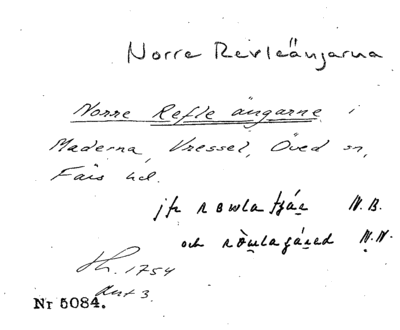 Norre Revleängarna
Norre Refle ängarne i
Maderna, Vressel, Öved sn,
Färs hd.
jfr N.B.
och N.N.
Lh. 1754
Akt 3.
Nr 5084.